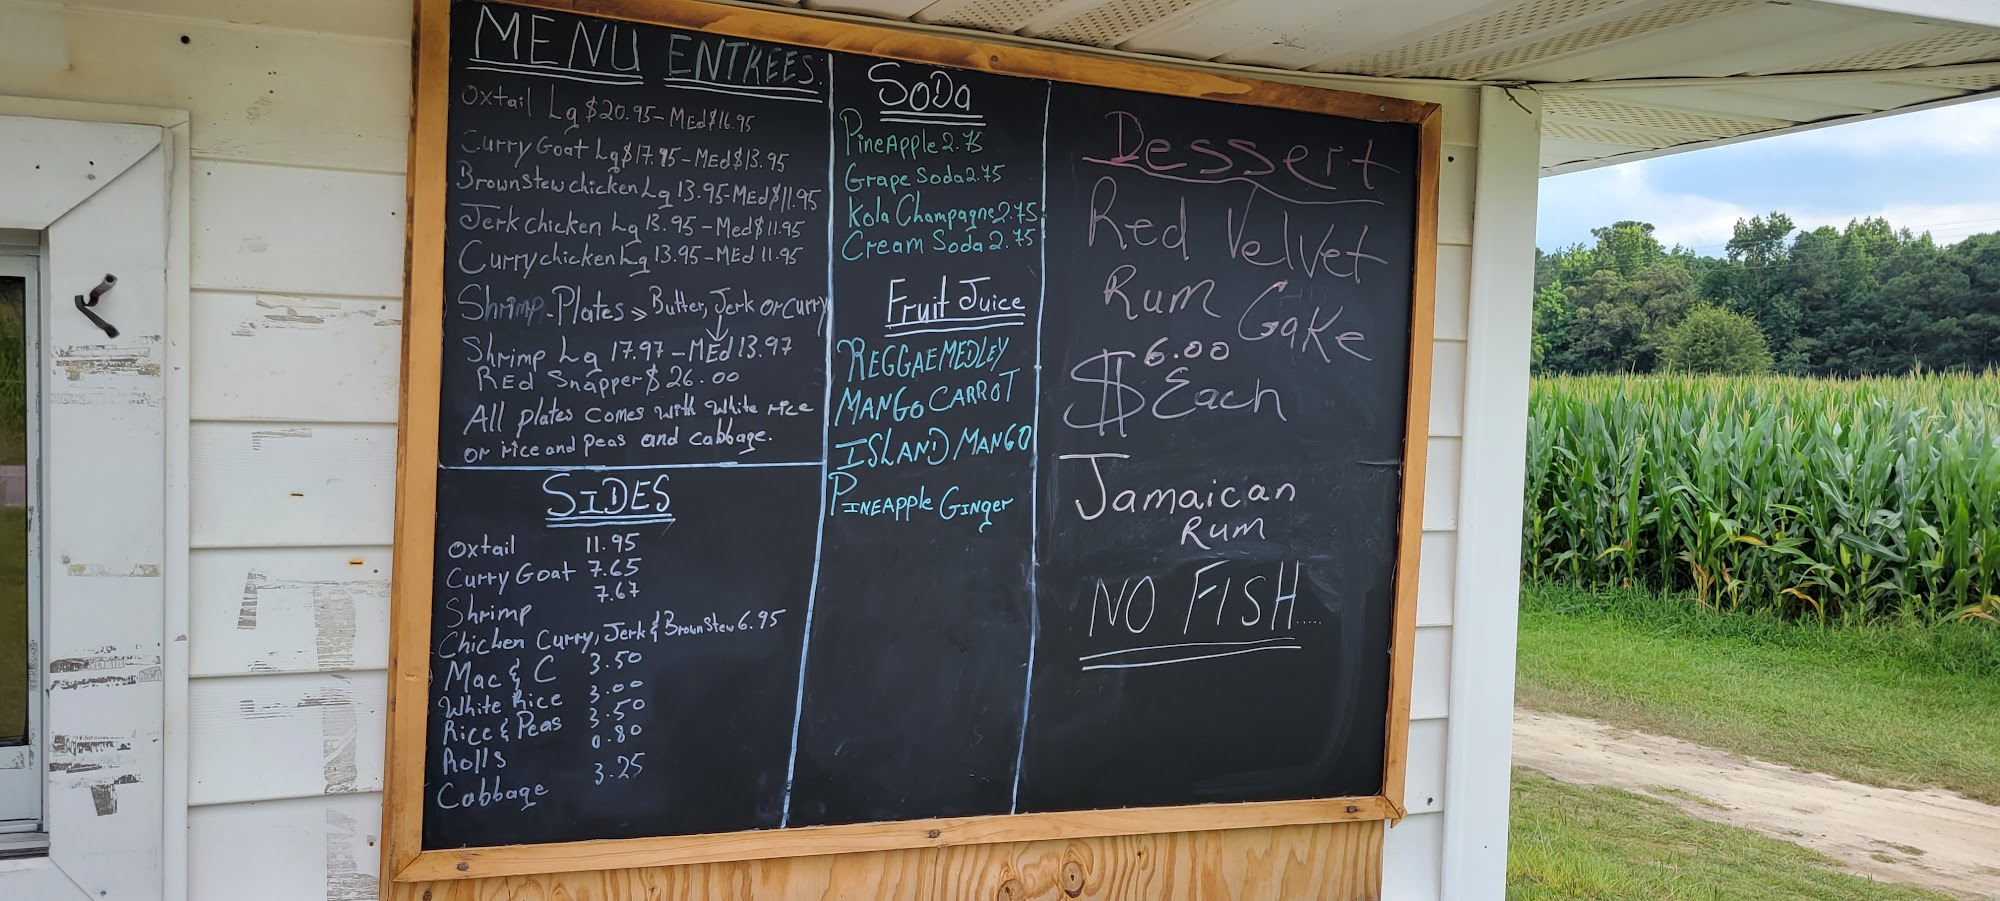 MENU ENTREES:
Oxtail Lg $20.95 - MEd $16.95
Curry Goat Lg $17.95 - MEd $13.95
Brown Stew chicken Lg 13.95 - MEd $11.95
Jerk chicken Lg 13.95 - Med $11.95
Curry chicken Lg 13.95 - MEd 11.95
Shrimp - Plates > Butter, Jerk or Curry
Shrimp Lg 17.97 - MEd 13.97
REd Snapper $ 26.00
All plates comes with white rice
or rice and peas and cabbage.
SIDES
Oxtail 11.95
Curry Goat 7.65
Shrimp 7.67
Chicken Curry, Jerk & Brown Stew 6.95
Mac & C 3.50
White Rice 3.00
Rice & Peas 3.50
Rolls 0.80
Cabbage 3.25
SODa
PineApple 2.75
Grape Soda 2.75
Kola Champagne 2.75
Cream Soda 2.75
Fruit Juice
REGGAE MEDLEY
MANGO CARROT
ISLAND MANGO
PINEApple GINger
Dessert
Red Velvet
Rum Cake
$6.00 Each
Jamaican
Rum
NO FISH.....